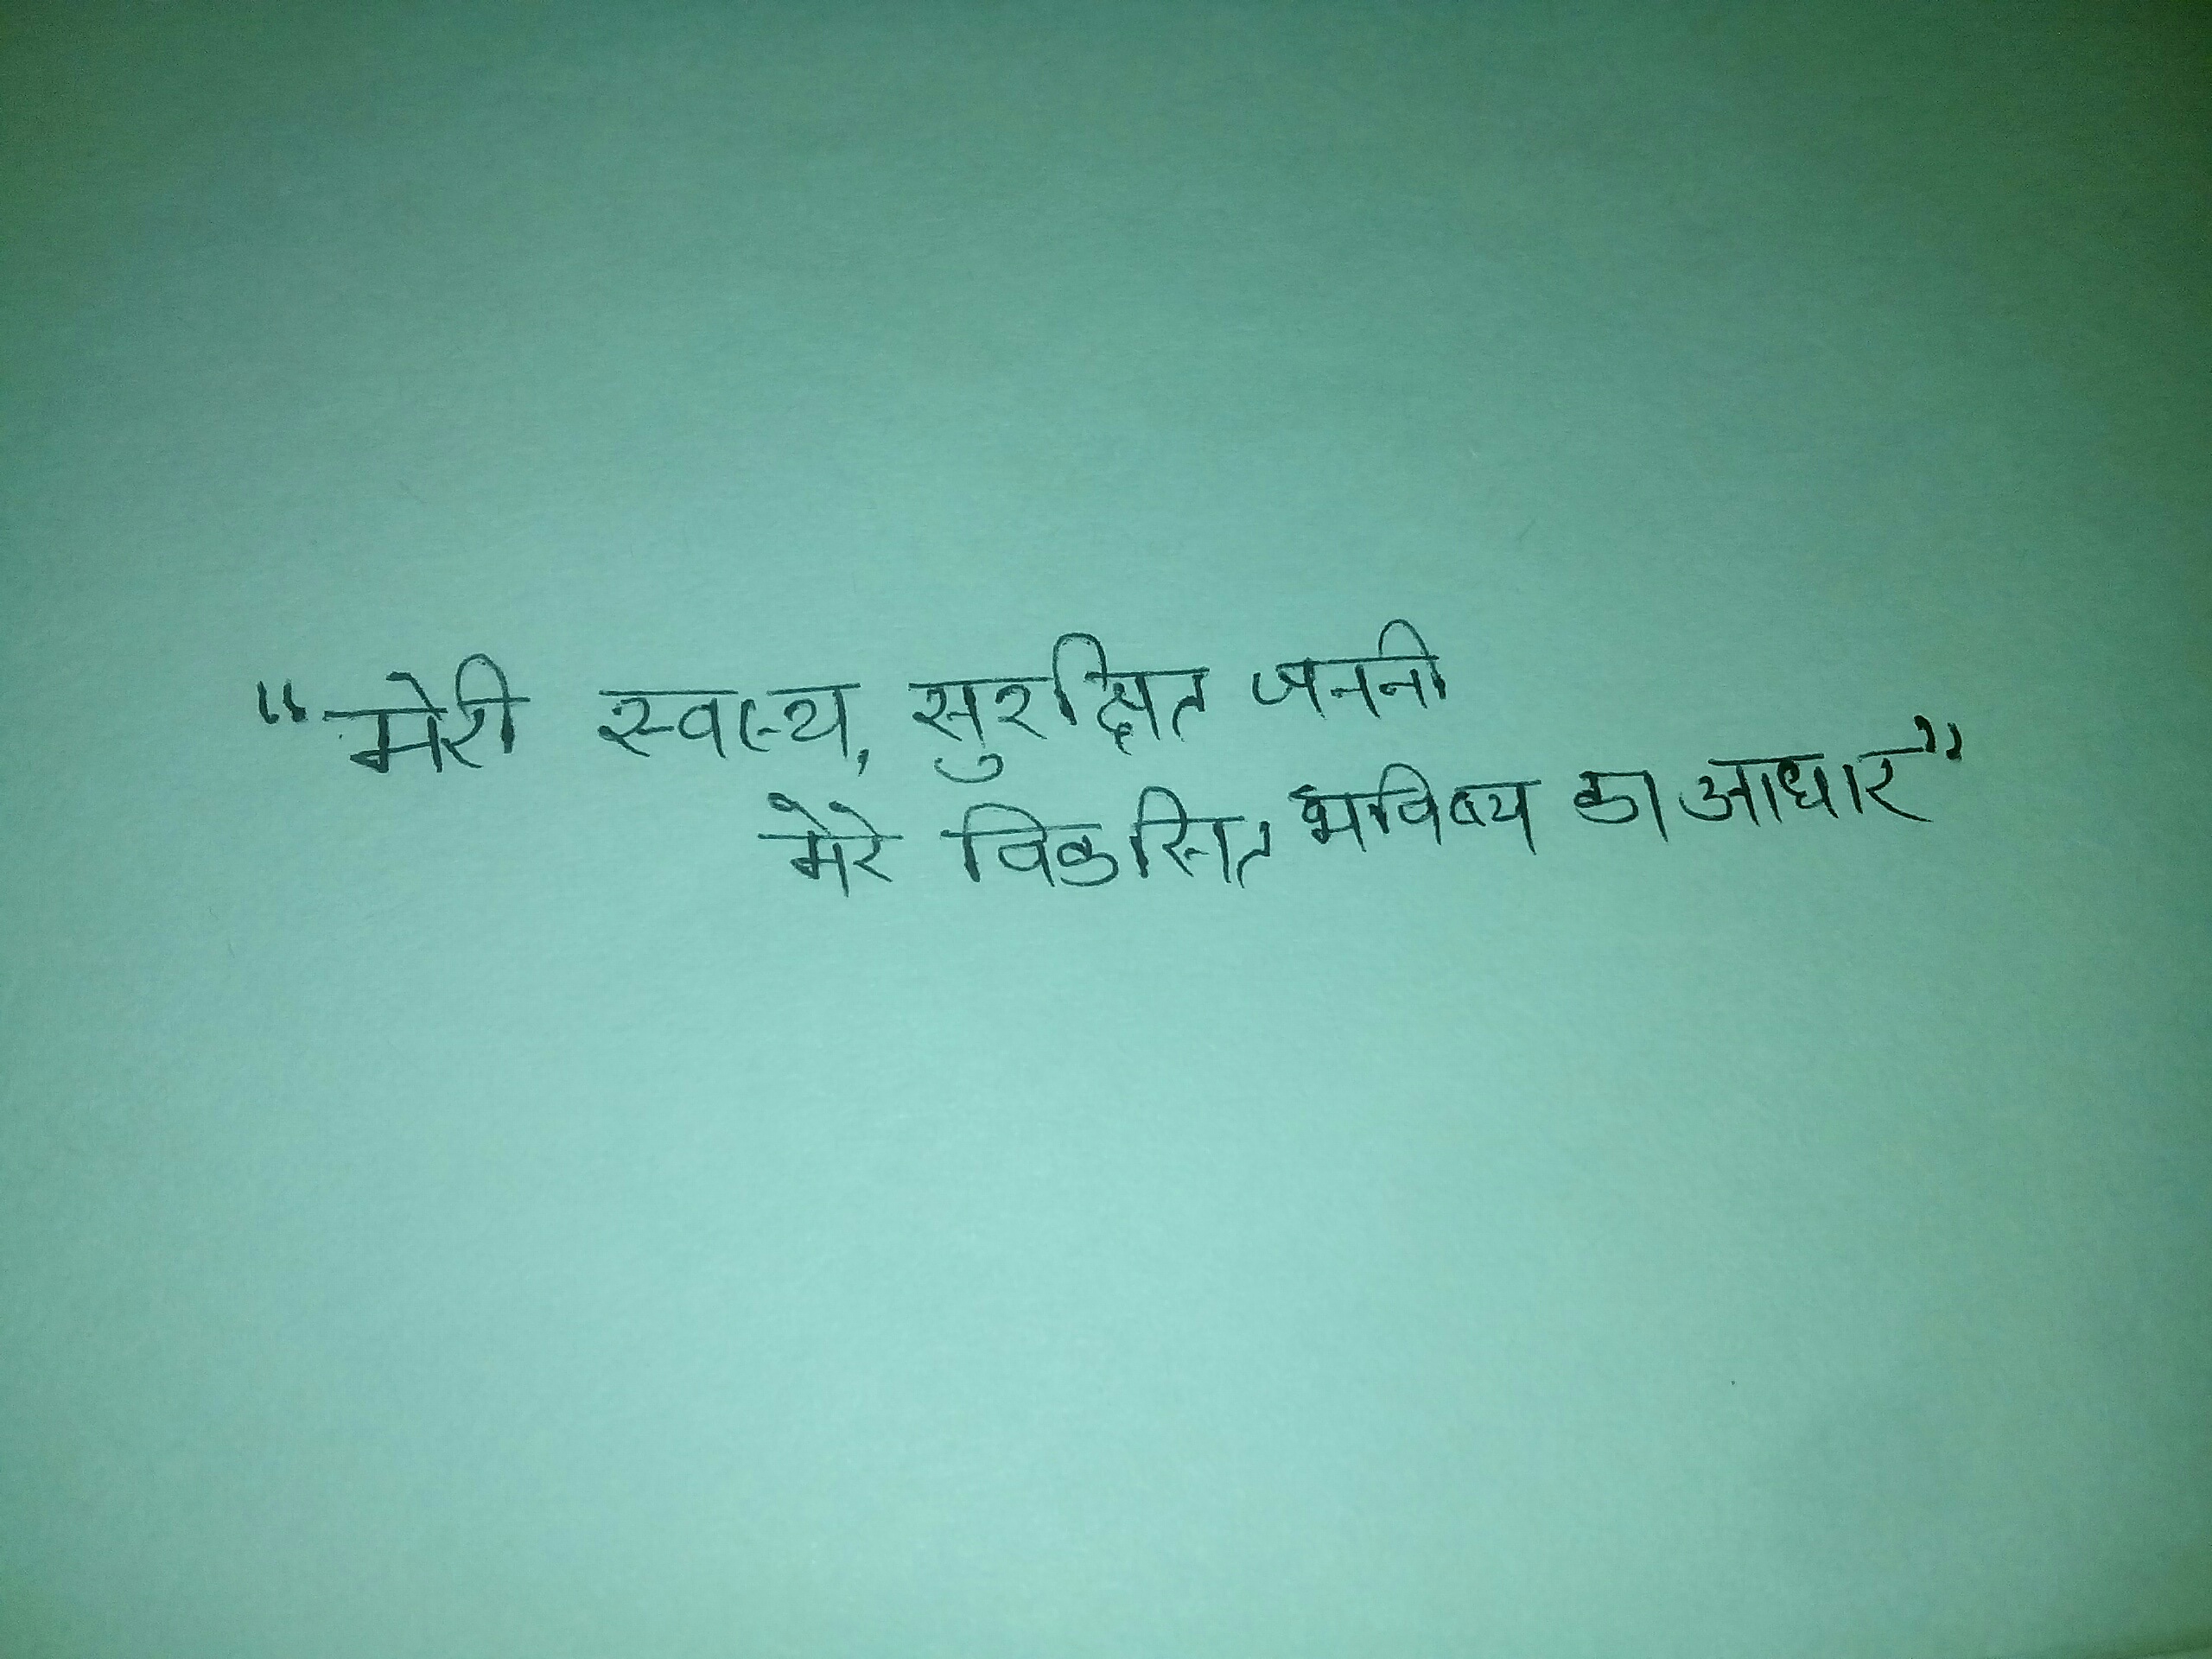 “मेरी स्वस्थ, सुरक्षित जननी
मेरे विकसित भविष्य का आधार”